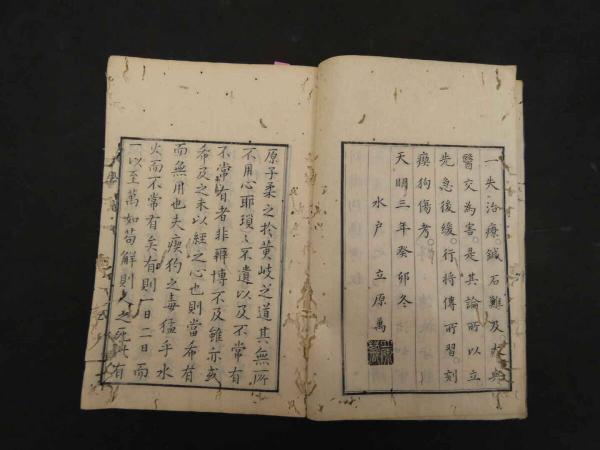 一失治療。鍼石難及。犬典
醫交為害。是其論所以立
先急後緩。行將傳所習。刻
瘈狗傷考。
天明三年癸卯冬
水戶 立原萬
原子柔之於黄岐之道其無所
不用心耶瑣〻不遺以及不常有
不常有者非辧博不及雖亦或
希及之未以經之心也則當希有
而無用也夫瘈狗之毒猛乎水
火而不常有矣有則一日二日而
一以至萬如苟解則人之死 有